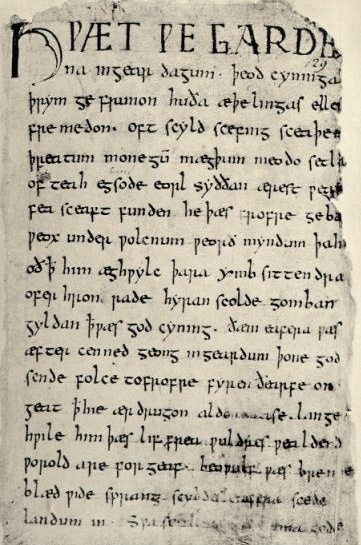 HǷÆT ǷE GARDE
na ingear dagum. þeod cyninga
þrym ge frunon huða æþelingas elle
fremedon. oft scyld scefing sceaþe
þreatum monegū mægþum meodo setla
of teah egsode eorl syððan ærest
fea sceaft funden heþæs frofre geba
ƿeox under ƿolcnum ƿeorð myndum þah
oð þ him æghƿylc þara ymb sittendra
ofer hron rade hyran scolde gomban
gyldan þ ƿæs god cyning. ðæm eafera ƿæs
æfter cenned geong ingeardum þone god
sende folce tofrofre fyren ðearfe on
geat þ hie ær drugon aldor ase. lange
hƿile him þæs lif frea ƿuldres ƿealdend
ƿorold are for geaf. beoƿulf ƿæs breme
blæd ƿide sprang scyldes eafera scede
landum in.